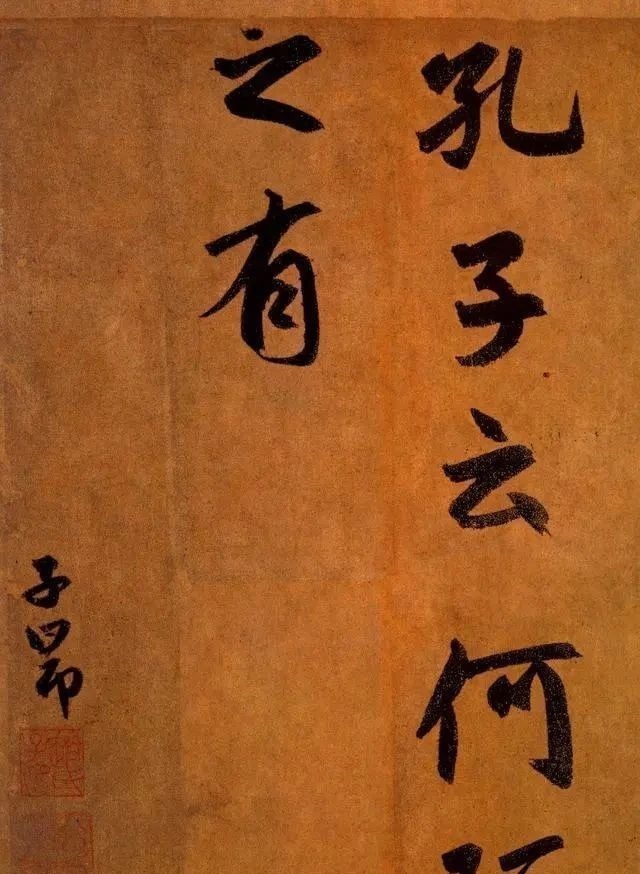 孔子云何陋
之有
子昂